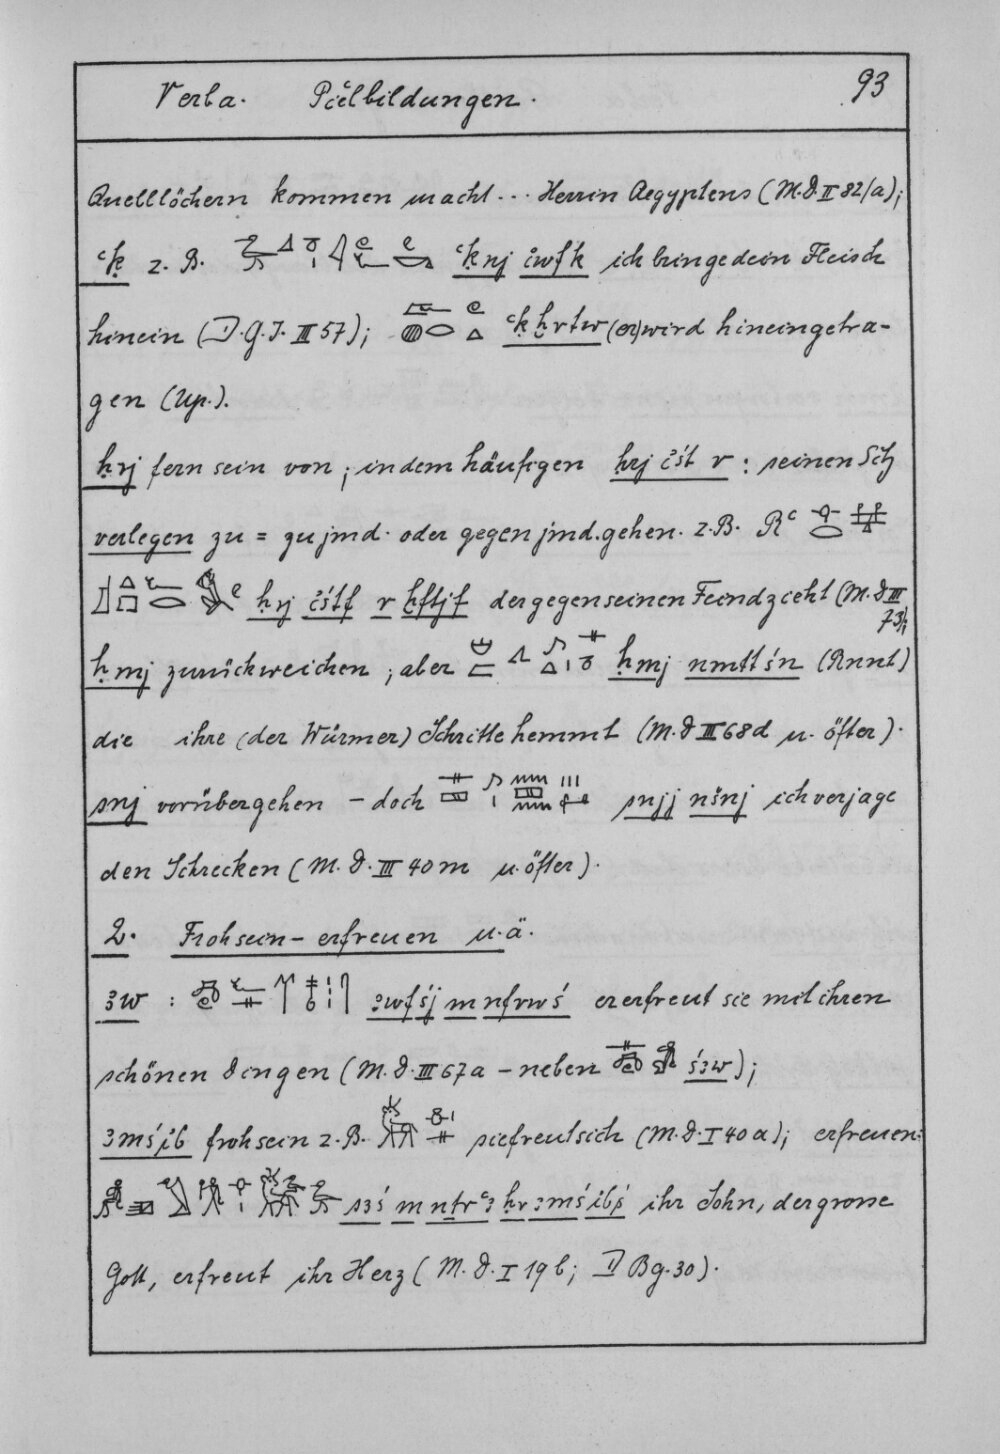 Verba. Piʿelbildungen. 93
Quelllöchern kommen macht... Herrin Aegyptens (M.D.II 82/a);
ʿḳ z.B. ʿḳ nj i͗wfk ich bringe dein Fleisch
hinein (D.G.I. III 57); ʿḳ ḫrtw (er) wird hineingetra-
gen (Up.).
ḥrj fern sein von; in dem häufigen ḥrj i͗śt r: seinen Sitz
verlegen zu = zu jmd. oder gegen jmd. gehen. z.B. Rʿ
ḥrj i͗śtf r ḫftjf der gegen seinen Feind zieht (M.D III 73/h
ḥmj zurückweichen; aber ḥmj nmttśn (Rnnt)
die ihre (der Würmer) Schritte hemmt (M.D III 68d u. öfter).
snj vorübergehen – doch snjj nšnj ich verjage
den Schrecken (M.D. III 40m u. öfter).
2. Froh sein – erfreuen u.ä.
ꜣw : ꜣwfśj m nfrwś er erfreut sie mit ihren
schönen Dingen (M.D. III 67a – neben śꜣw);
ꜣmś i͗b froh sein z.B. sie freut sich (M.D. I 40a); erfreuen:
sꜣś m nṯr ʿꜣ ḥr ꜣmś i͗bś ihr Sohn, der grosse
Gott, erfreut ihr Herz (M.D. I 19b; D Bg. 30).